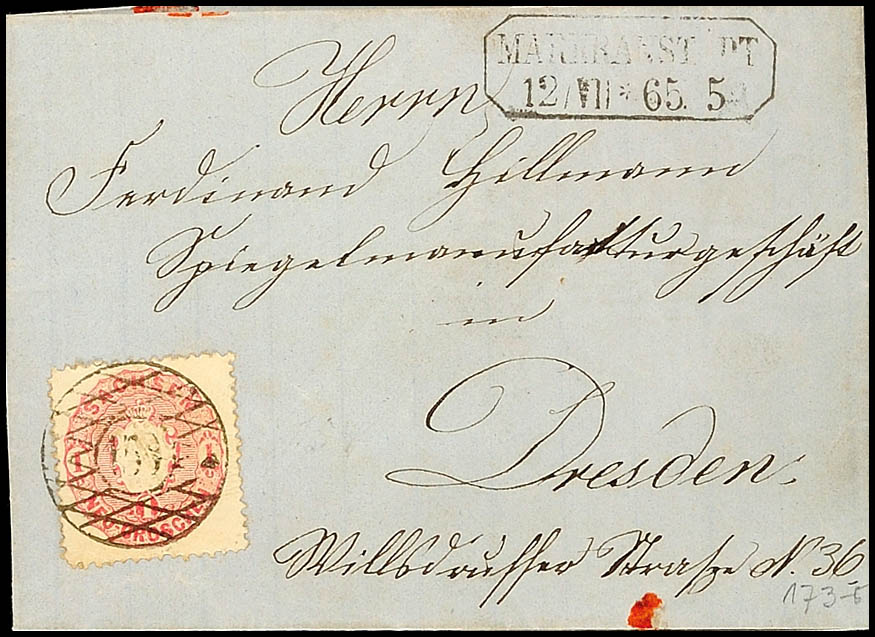 MARKRANST DT
12/VII * 65. 5
Herrn
Ferdinand Hillmann
Spiegelmanufakturgeschäft
in
Dresden.
Willsdruffer Straße N. 36
SACHSEN
NEU-GROSCHEN
173